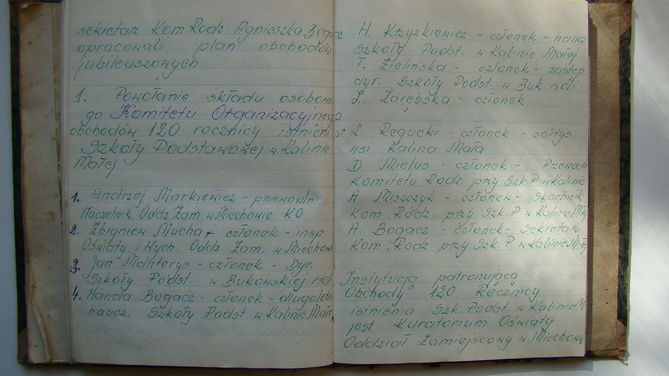 sekretarz Kom. Rodz. Agnieszka Bogacz
opracowali plan obchodów
jubileuszowych
1. Powołanie składu osobowe-
go Komitetu Organizacyjnego
obchodów 120 rocznicy istnienia
Szkoły Podstawowej w Kalinie
Małej
1. Andrzej Markiewicz - przewodn.
Naczelnik Oddz. Zam. w Miechowie KO
2. Zbigniew Mucha - członek - insp.
Oświaty i Wych. Oddz. Zam. w Miechowie
3. Jan - członek - Dyr.
Szkoły Podst. w Bukowskiej Woli
4. Wanda Bogacz - członek - długoletni
naucz. Szkoły Podst. w Kalinie Małej
H. Krzyżkiewicz - członek - naucz.
Szkoły Podst. w Kalinie Małej
T. Zielińska - członek - zastęp.
dyr. Szkoły Podst. w Buk. Woli
L. Zarębska - członek
L. Rogucki - członek - sołtys
wsi Kalina Mała
D. Mielus - członek - Przewod.
Komitetu Rodz. przy Szk. P. w Kalinie
A. Miszczyk - członek - Skarbnik
Kom. Rodz. przy Szk. P. w Kalinie Małej
A. Bogacz - członek - sekretarz
Kom. Rodz. przy Szk. P. w Kalinie Małej
Instytucją patronującą
Obchody 120 Rocznicy
istnienia Szk. Podst. w Kalinie M.
jest Kuratorium Oświaty
Oddział Zamiejscowy w Miechowie